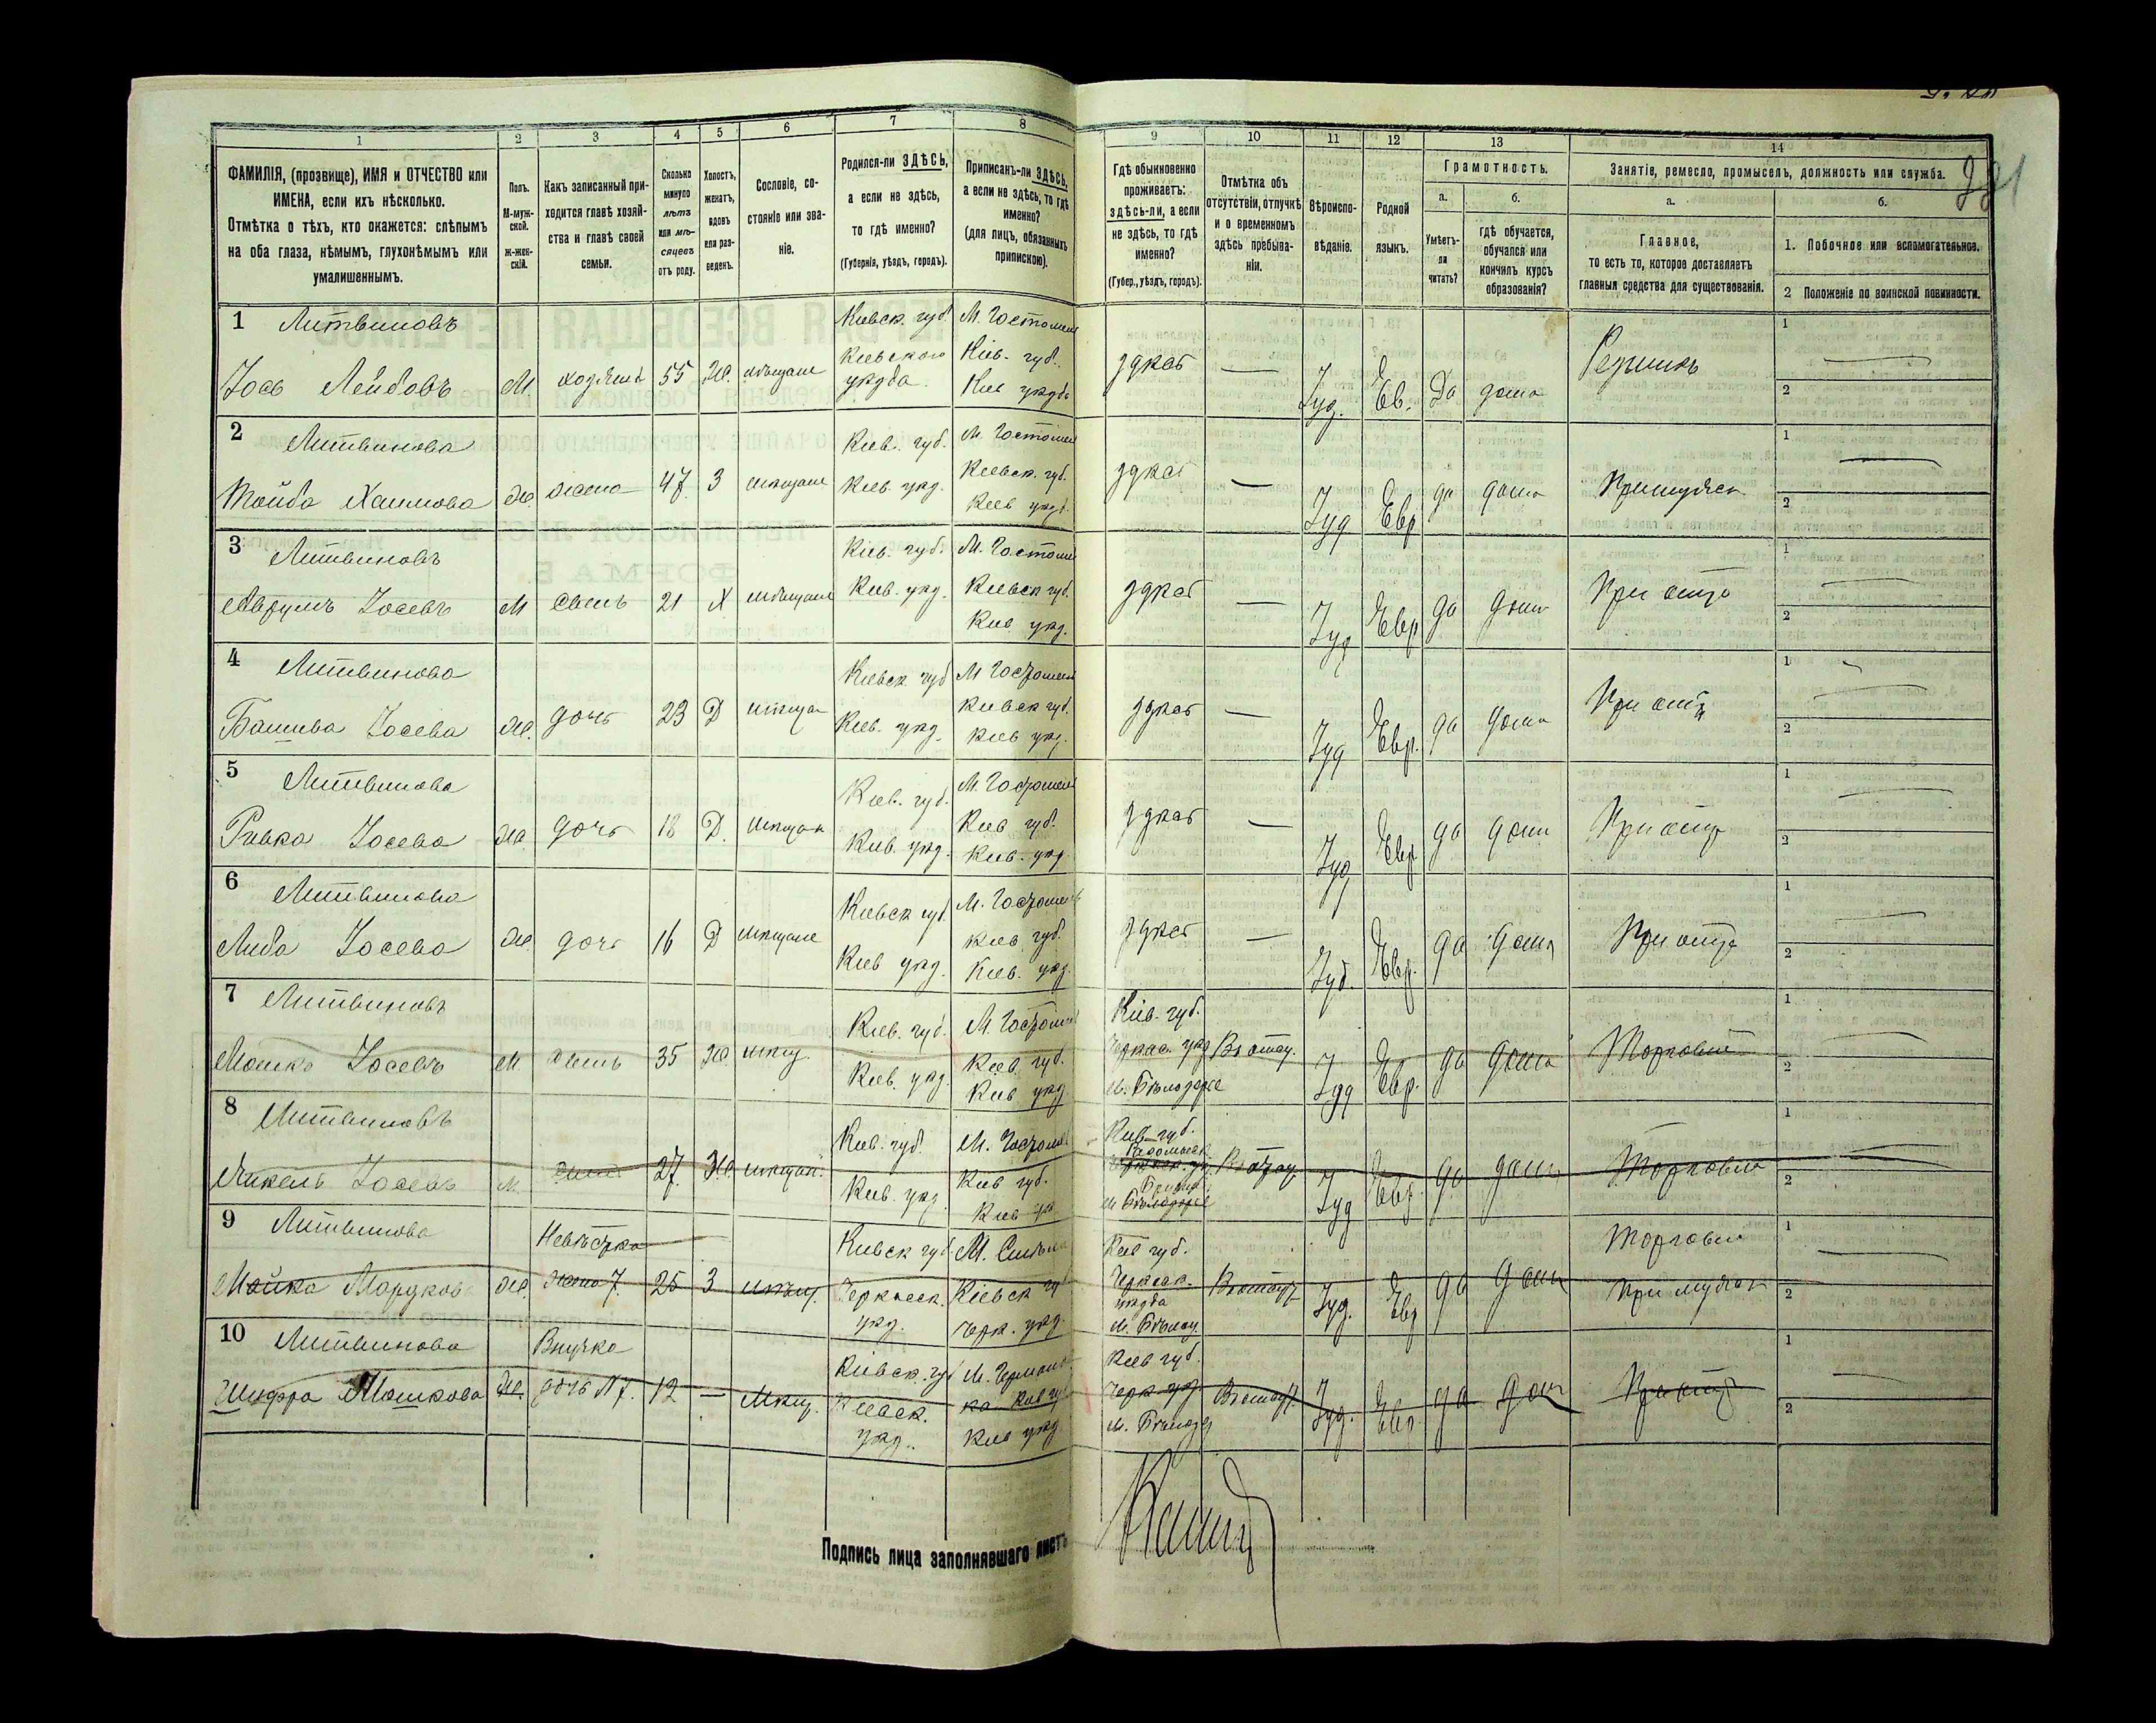 1 2 3 4 5 6 7 8 9 10 11 12 13 14
ФАМИЛІЯ, (прозвище), ИМЯ и ОТЧЕСТВО или
ИМЕНА, если ихъ нѣсколько.
Отмѣтка о тѣхъ, кто окажется: слѣпымъ
на оба глаза, нѣмымъ, глухонѣмымъ или
умалишеннымъ.
Полъ.
М-муж-
ской.
ж-жен-
скій.
Какъ записанный при-
ходится главѣ хозяй-
ства и главѣ своей
семьи.
Сколько
минуло
лѣтъ
или мѣ-
сяцевъ
отъ роду.
Холостъ,
женатъ,
вдовъ
или раз-
веденъ.
Сословіе, со-
стояніе или зва-
ніе.
Родился-ли ЗДѢСЬ,
а если не здѣсь,
то гдѣ именно?
(Губернія, уѣздъ, городъ).
Приписанъ-ли ЗДѢСЬ,
а если не здѣсь, то гдѣ
именно?
(для лицъ, обязанныхъ
припискою).
Гдѣ обыкновенно
проживаетъ:
здѣсь-ли, а если
не здѣсь, то гдѣ
именно?
(Губер., уѣздъ, городъ).
Отмѣтка объ
отсутствіи, отлучкѣ
и о временномъ
здѣсь пребыва-
ніи.
Вѣроиспо-
вѣданіе.
Родной
языкъ.
Грамотность.
а.
Умѣетъ-
ли
читать?
б.
гдѣ обучается,
обучался или
кончилъ курсъ
образованія?
Занятіе, ремесло, промыселъ, должность или служба.
а.
Главное,
то есть то, которое доставляетъ
главныя средства для существованія.
б.
1. Побочное или вспомогательное.
2 Положеніе по воинской повинности.
1 Литвиновъ
Іось Лейбовъ М хозяинъ 55 Ж. мѣщане
Кіевск. губ. Кіевскаго уѣзда.
М. Гостомель Кіев. губ. Кіев уѣзда
здѣсь — Іуд. Ев. Да дома Рѣзникъ 1 — 2
2 Литвинова
Тойба Хаимова Ж. жена 47 З мѣщане
Кіев. губ. Кіев. уѣзд.
М. Гостомел Кіевск. губ. Кіев уѣзд.
здѣсь — Іуд Евр да дома При мужѣ 1 — 2
3 Литвиновъ
Аврумъ Іосевъ М сынъ 21 Х мѣщане
Кіев. губ. Кіев. уѣзд.
М. Гостоме Кіевск губ. Кіев уѣзд.
здѣсь — Іуд Евр да дома При отцѣ 1 — 2
4 Литвинова
Башива Іосева Ж. дочь 23 Д мѣщан
Кіевск губ Кіев. уѣзд.
М Гостомел Кіевск губ. Кіев уѣз.
здѣсь — Іуд Евр. да дома При отцѣ 1 — 2
5 Литвинова
Ривка Іосева Ж. дочь 18 Д. мѣщан
Кіев. губ. Кіев. уѣзд.
М. Гостомел Кіев губ. Кіев. уѣзд.
здѣсь — Іуд Евр да дома При отцѣ 1 — 2
6 Литвинова
Либа Іосева Ж. дочь 16 Д мѣщане
Кіевск губ. Кіев уѣзд.
М. Гостомель Кіев губ. Кіев. уѣзд.
здѣсь — Іуд. Евр. да дома При отцѣ 1 — 2
7 Литвиновъ
Мошко Іосевъ М. сынъ 35 Ж мѣщ.
Кіев. губ. Кіев. уѣзд.
М. Гостомел Кіев. губ. Кіев уѣзд.
Кіев. губ. Черкас. уѣзд м. Бѣлозерье
Іуд Евр. да дома Торговля 1 2
8 Литвиновъ
Іосевъ М. сынъ 27. Ж мѣщан.
Кіев. губ Кіев. уѣзд.
М. Гостомел Кіев губ. Кіев уѣз
Кіев. губ. Радомысл. м Бѣлозерье
Іуд Евр. да дома Торговля 1 2
9 Литвинова
Невѣстка жена 7. Ж. 25 З мѣщ.
Кіевск губ Черкасск. уѣзд.
Кіевск губ Черк. уѣзд.
Кіев губ. Черкасск. уѣзда м. Бѣлоз
Іуд. Евр да дома Торговля При мужѣ 1 — 2
10 Литвинова
Шифра Мошкова Ж. Внучка дочь N 7. 12 — Мѣщ.
Кіевск. губ Кіевск. уѣзд.
Кіев губ Кіев уѣзд
Кіев губ. Черк уѣз м. Бѣлозер
Іуд. Евр. да дом При отцѣ 1 — 2
Подпись лица заполнявшаго листъ